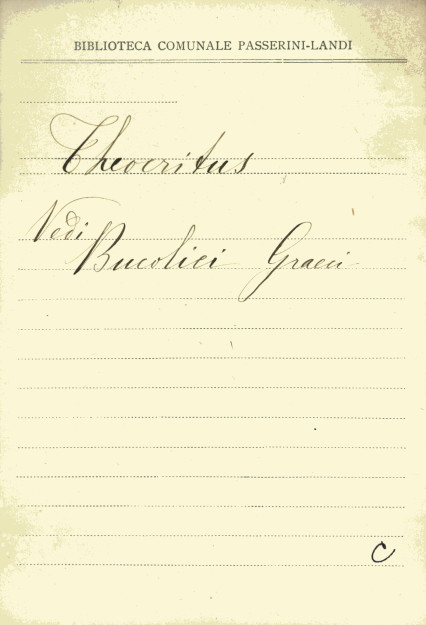 BIBLIOTECA COMUNALE PASSERINI-LANDI
Theocritus
Vedi
Bucolici Graeci
C